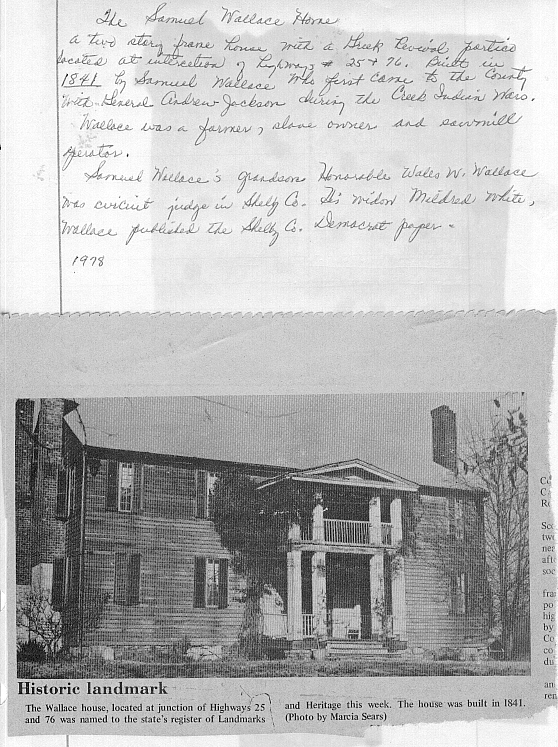 The Samuel Wallace Home
a two story frame house with a Greek Revival portico
located at intircetion of highways # 25 & 76. Built in
1841 by Samuel Wallace who first came to the County
with General Andrew Jackson during the Creek Indian Wars.
Wallace was a farmer, slave owner and sawmill
operator.
Samuel Wallace's grandson Honorable Wales W. Wallace
was circuit judge in Shelby Co. His widow Mildred White,
Wallace published the Shelby Co. Democrat paper.
1978
Historic landmark
The Wallace house, located at junction of Highways 25
and 76 was named to the state's register of Landmarks
and Heritage this week. The house was built in 1841.
(Photo by Marcia Sears)
C
C
R
Sc
tw
ner
aft
soc
fra
po
hig
by
Co
co
du
an
ren